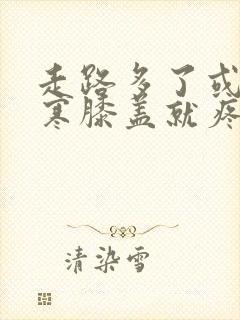 走路多了或
寒膝盖就疼
清染雪